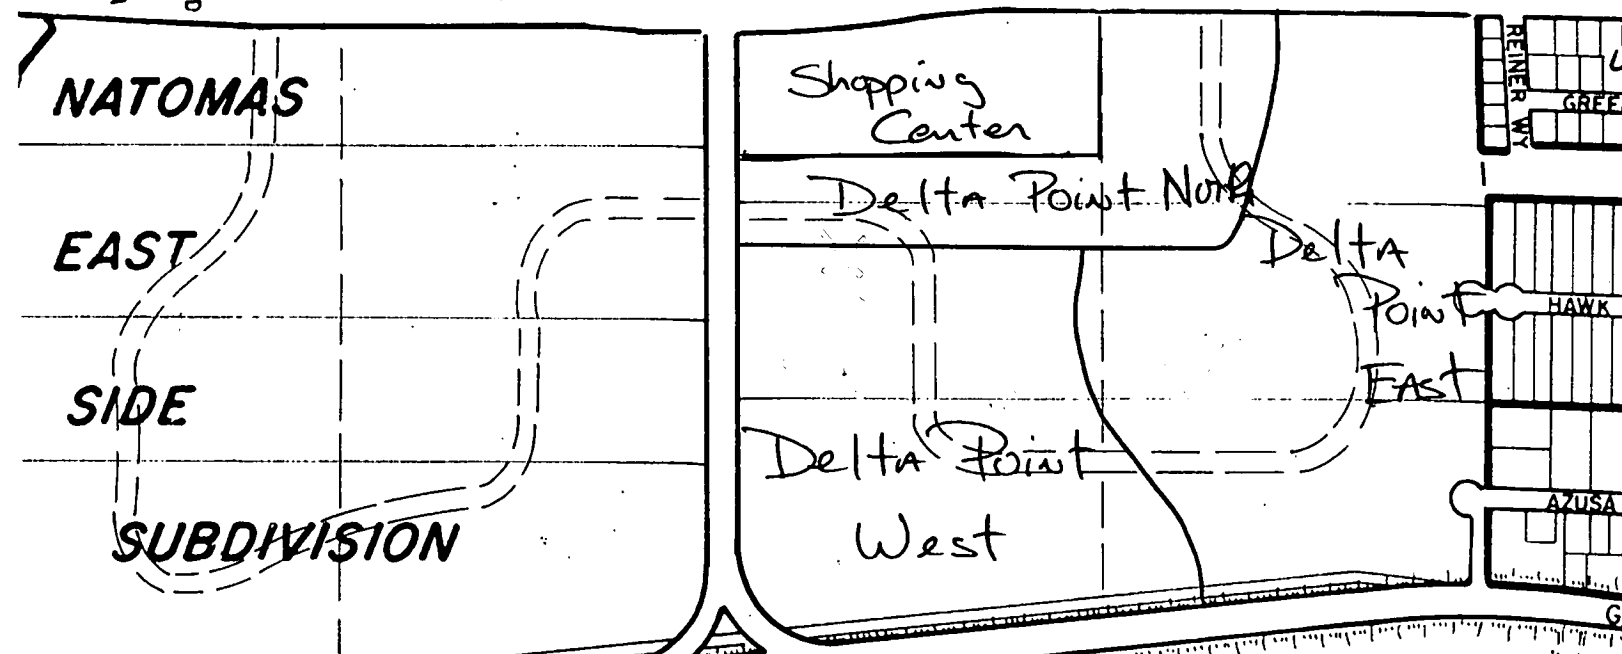 NATOMAS
EAST
SIDE
SUBDIVISION
Shopping
Center
Delta Point North
Delta
Point
East
Delta Point
West
REINER WY
HAWK
AZUSA